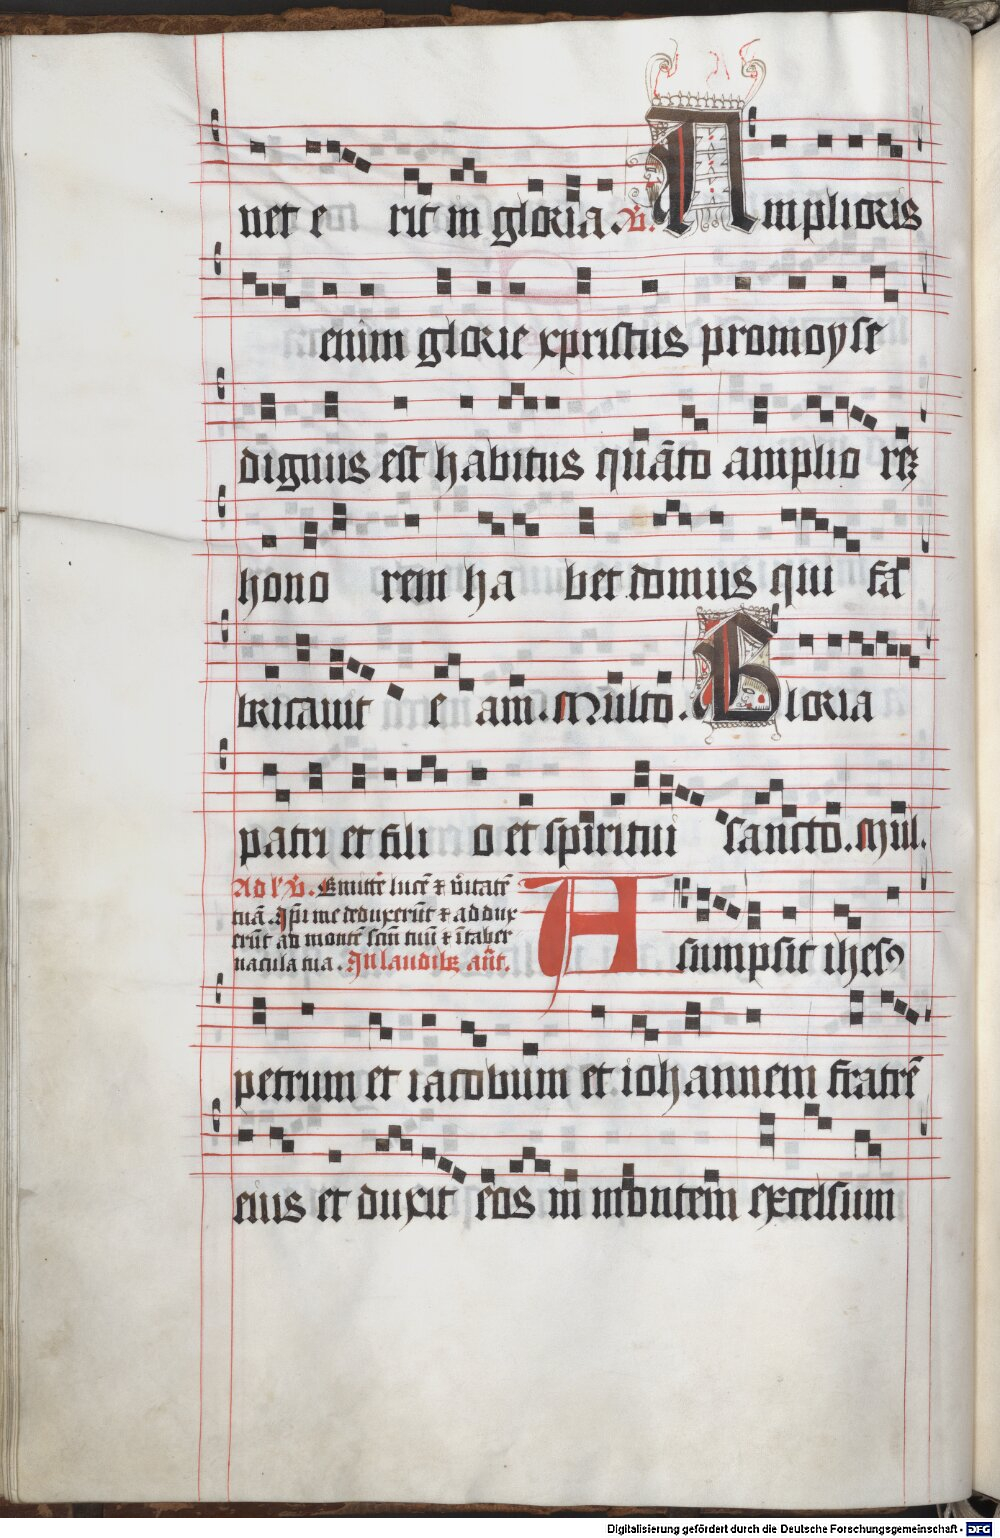 net e rit in gloria. V̄. Amplioris
enim glorie xpristus pro moyse
dignus est habitus quāto amplio rē
hono rem ha bet domus qui fa
bricavit e am. Multo. Gloria
patri et fili o et spiritui sancto. Mul.
Ad l' V̄. Emitte lucē ⁊ v̄itatē
tuā. Ip̄i me deduxerūt ⁊ ad dux
erūt ad montē scm̄ tuū ⁊ ī taber
nacula tua. In laudibꝫ an̄t. Assumpsit ihesꝰ
petrum et iacobum et iohannem fratrē
eius et duxit eos in montem excelsum
Digitalisierung gefördert durch die Deutsche Forschungsgemeinschaft - DFG